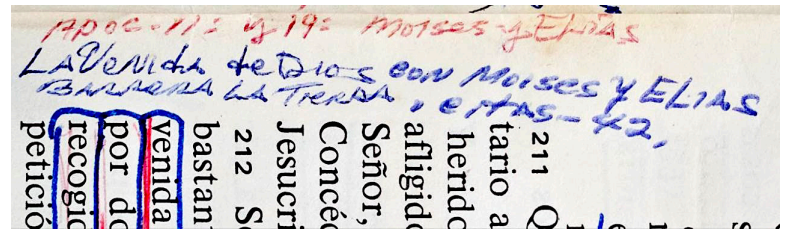 Apoc-11: y 19: Moises y Elias
La Venida de Dios con Moises y Elias
Barrera La Tierra, e Htas-42,
211 Q
tario a
herido
afligido
Señor,
Concéd
Jesucri
212 Se
bastan
venida
por do
recogid
petició